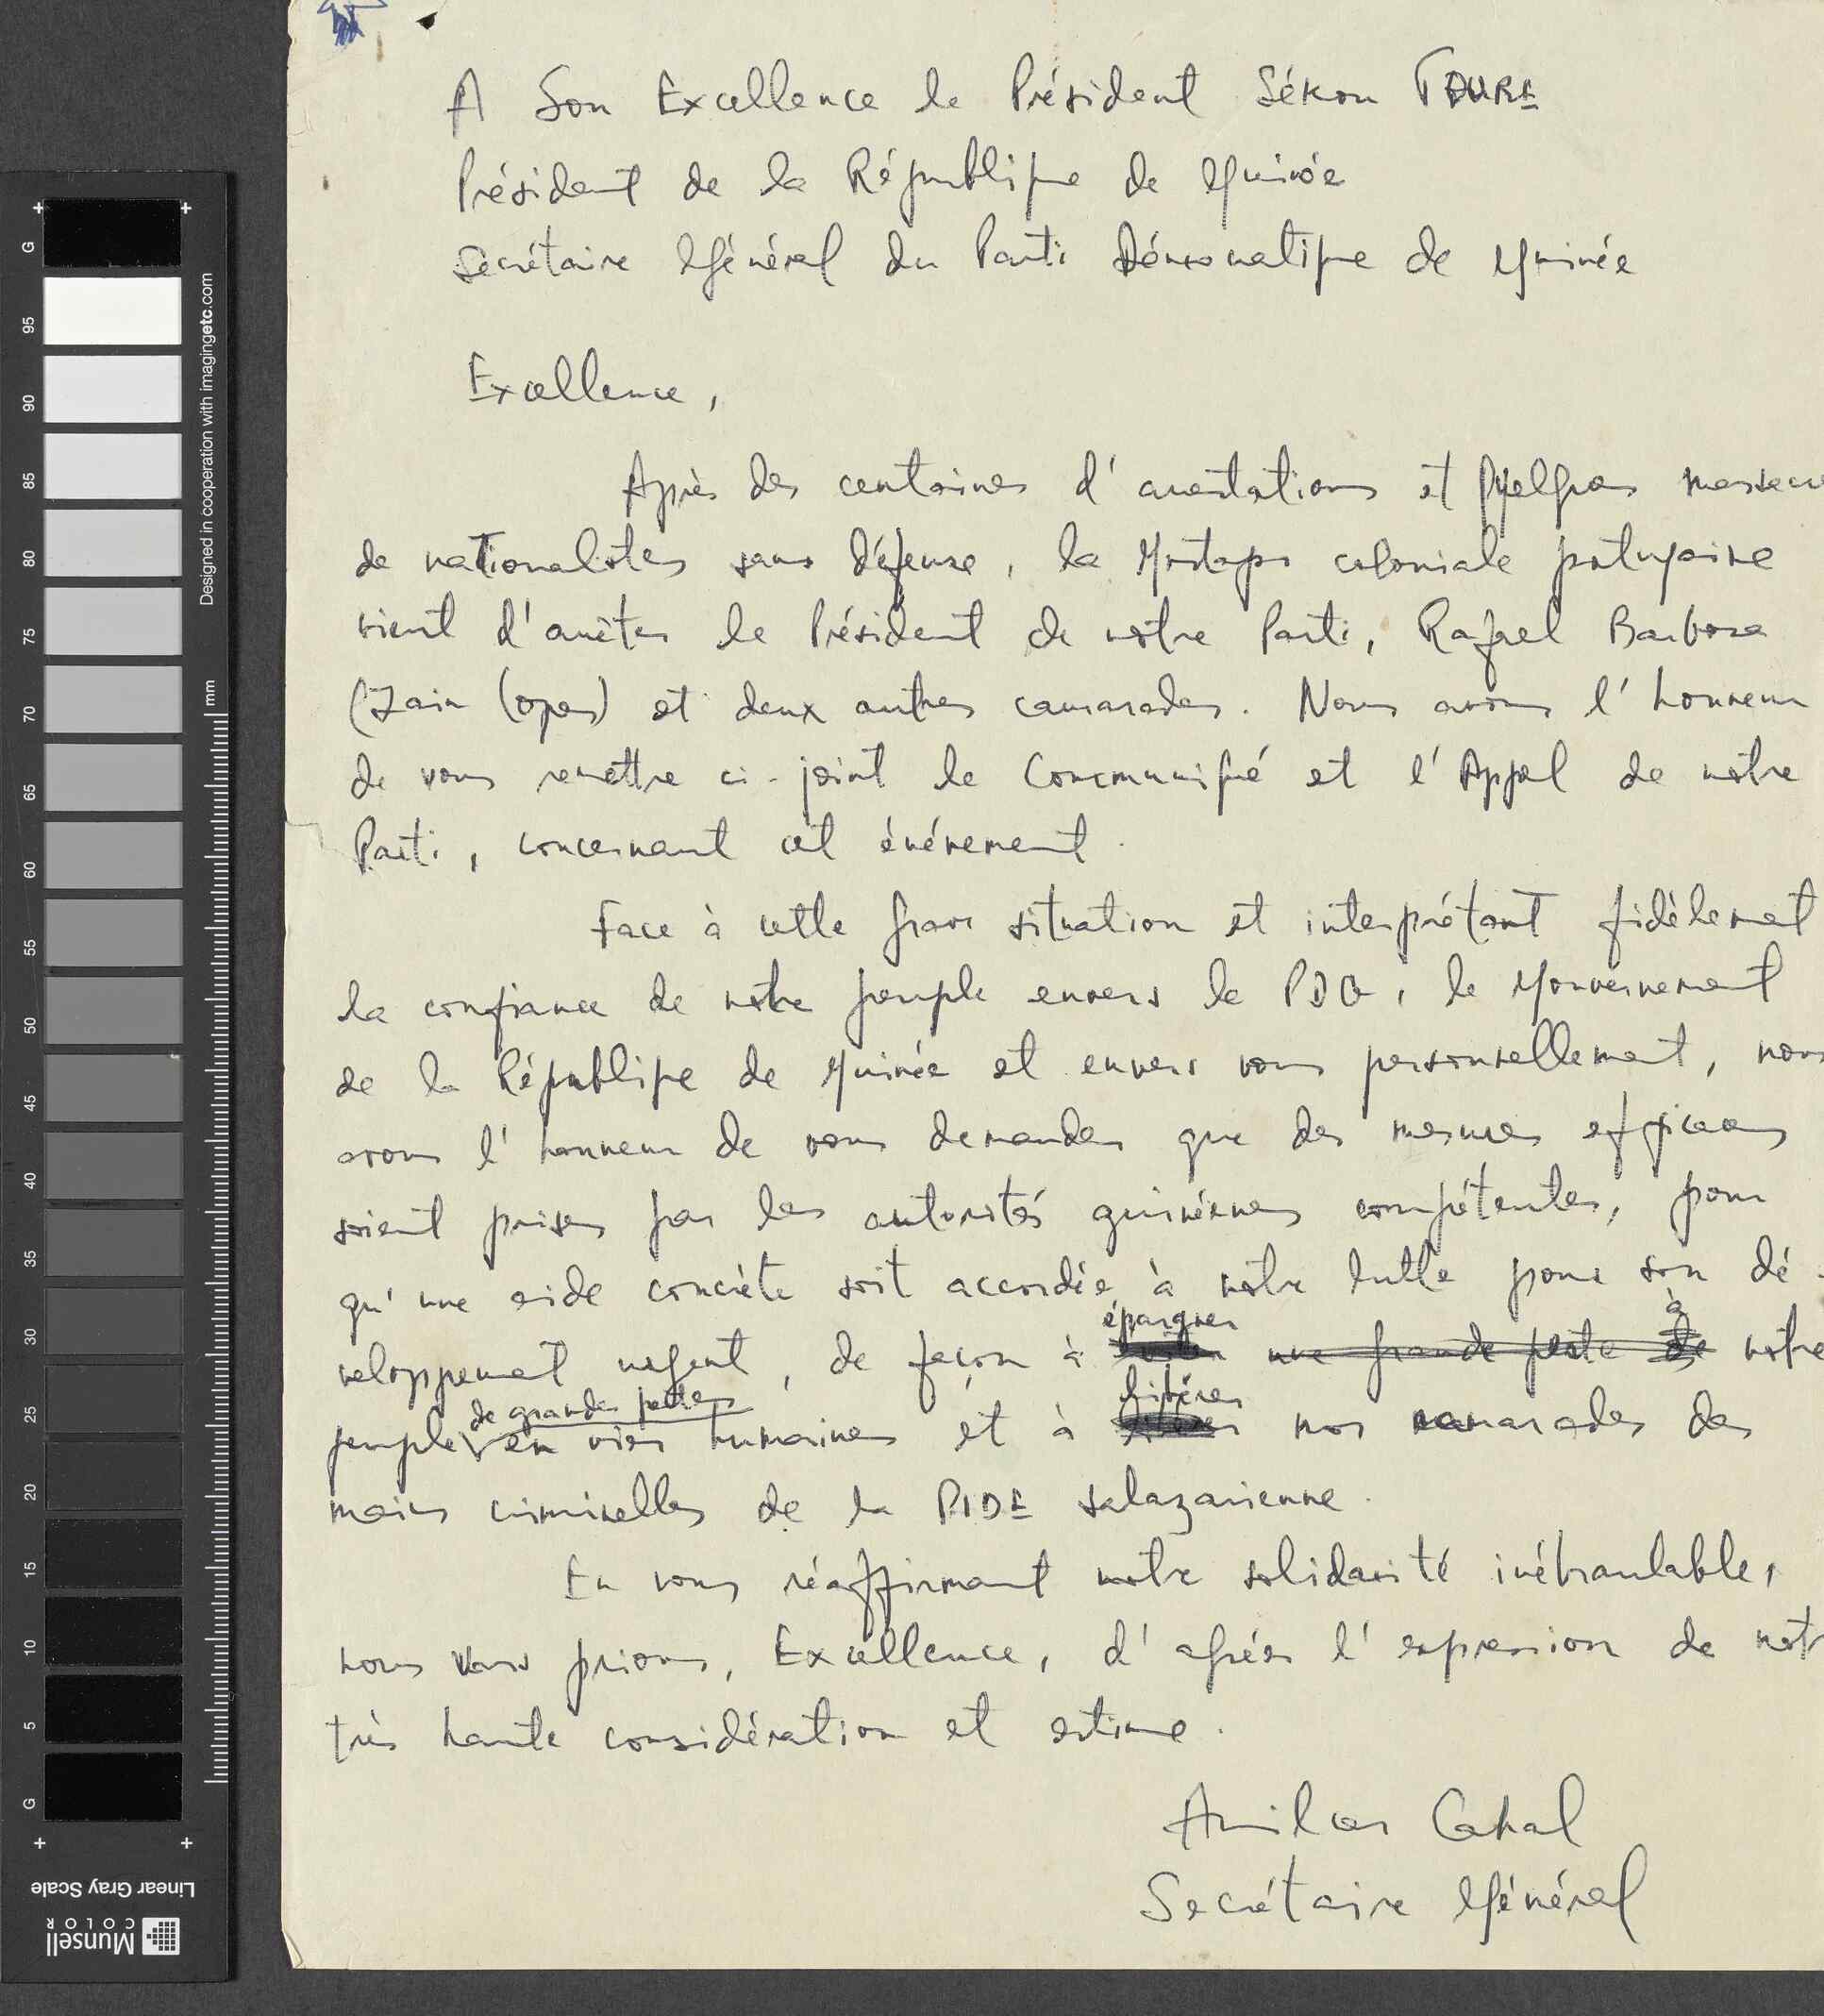 A Son Excellence le Président Sékou TOURE
Président de la République de Guinée
Secrétaire Général du Parti Démocratique de Guinée
Excellence,
Après des centaines d'arrestations et quelques massacre
de nationalistes sans défense, la Gestapo coloniale portugaise
vient d'arrêter le Président de notre Parti, Rafael Barbosa
(Zain Lopes) et deux autres camarades. Nous avons l'honneur
de vous remettre ci-joint le Communiqué et l'Appel de notre
Parti, concernant cet événement.
Face à cette grave situation et interprétant fidèlement
la confiance de notre peuple envers le PDG, le Gouvernement
de la République de Guinée et envers vous personnellement, nous
avons l'honneur de vous demander que des mesures efficaces
soient prises par les autorités guinéennes compétentes, pour
qu'une aide concrète soit accordée à notre lutte pour son dé-
épargner à
veloppement urgent, de façon à une grande perte de notre
de grandes pertes libérer
peuple en vies humaines et à nos camarades des
mains criminelles de la PIDE salazarienne.
En vous réaffirmant notre solidarité inébranlable,
nous vous prions, Excellence, d'agréer l'expression de notr
très haute considération et estime.
Amilcar Cabral
Secrétaire Général
G
95
90
85
80
75
70
65
60
55
50
45
40
35
30
25
20
15
10
5
G
mm
Designed in cooperation with imagingetc.com
Linear Gray Scale
Munsell
COLOR